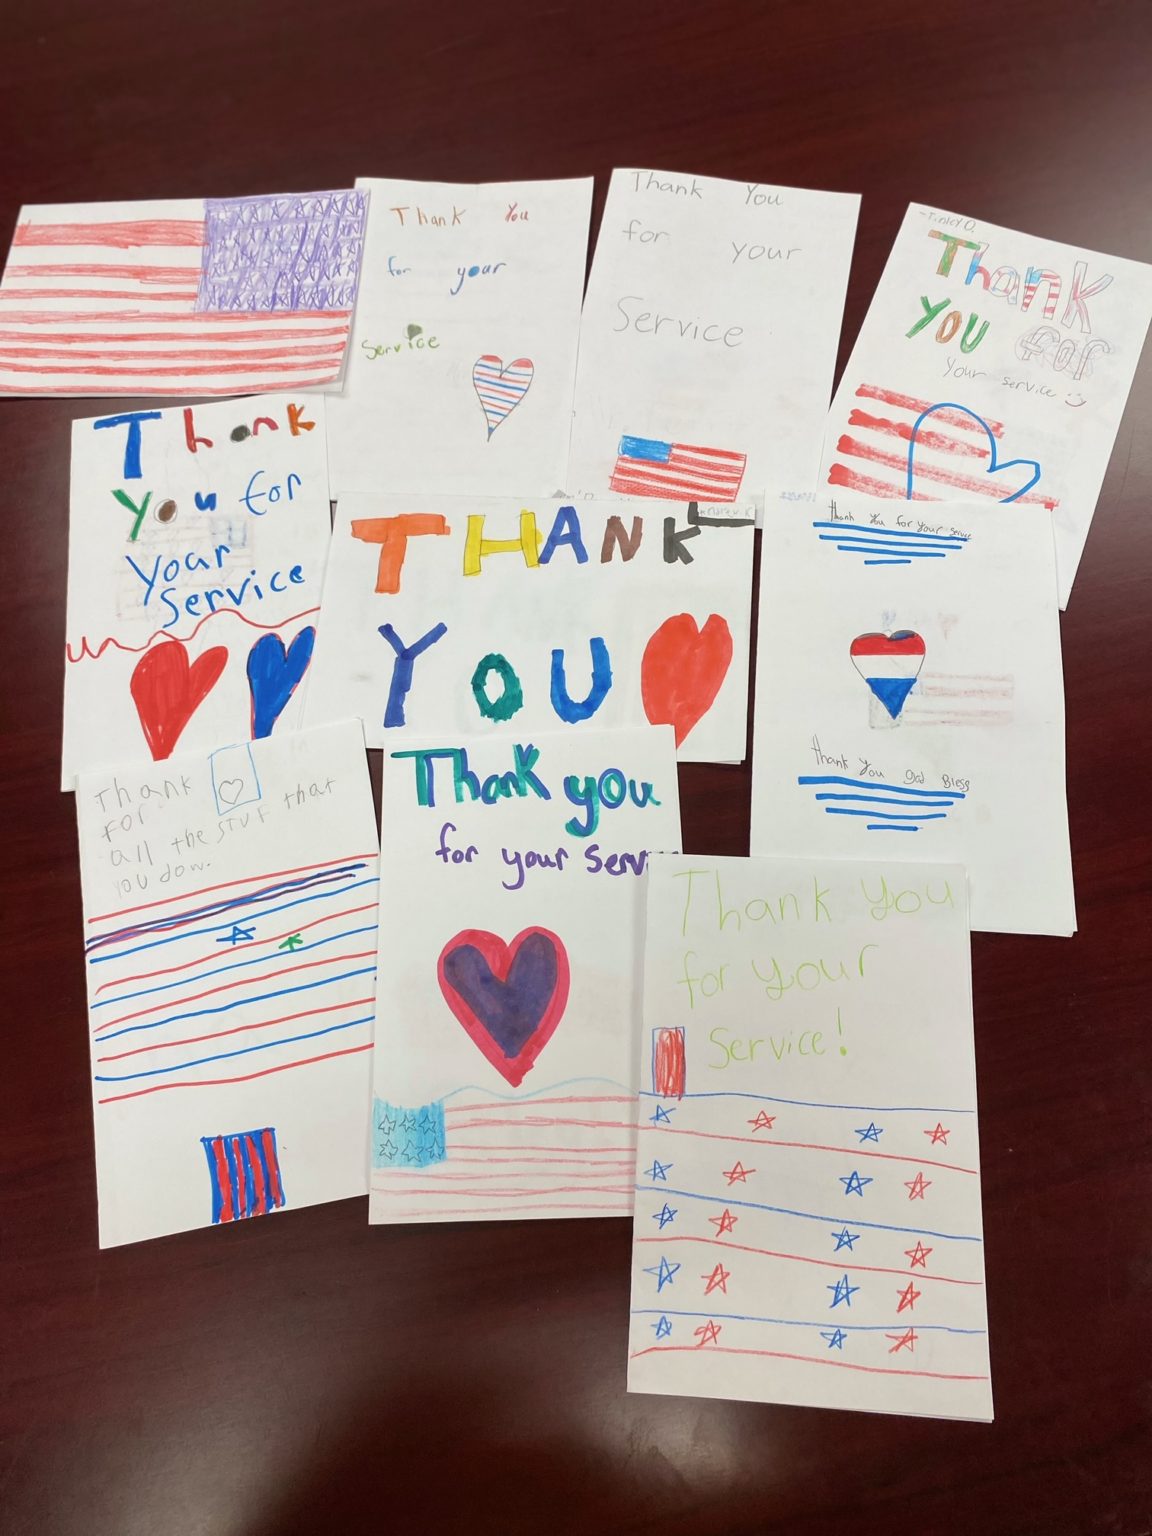 Thank You
for your
Service
Thank You
for your
Service
Thank
YOU FOR
Your service :)
Thank
You for
Your
Service
THANK
YOU
Thank You for Your Service
Thank You god Bless
Thank
For
all the stuf that
you dow.
Thank you
for your Serv
Thank You
for Your
Service!